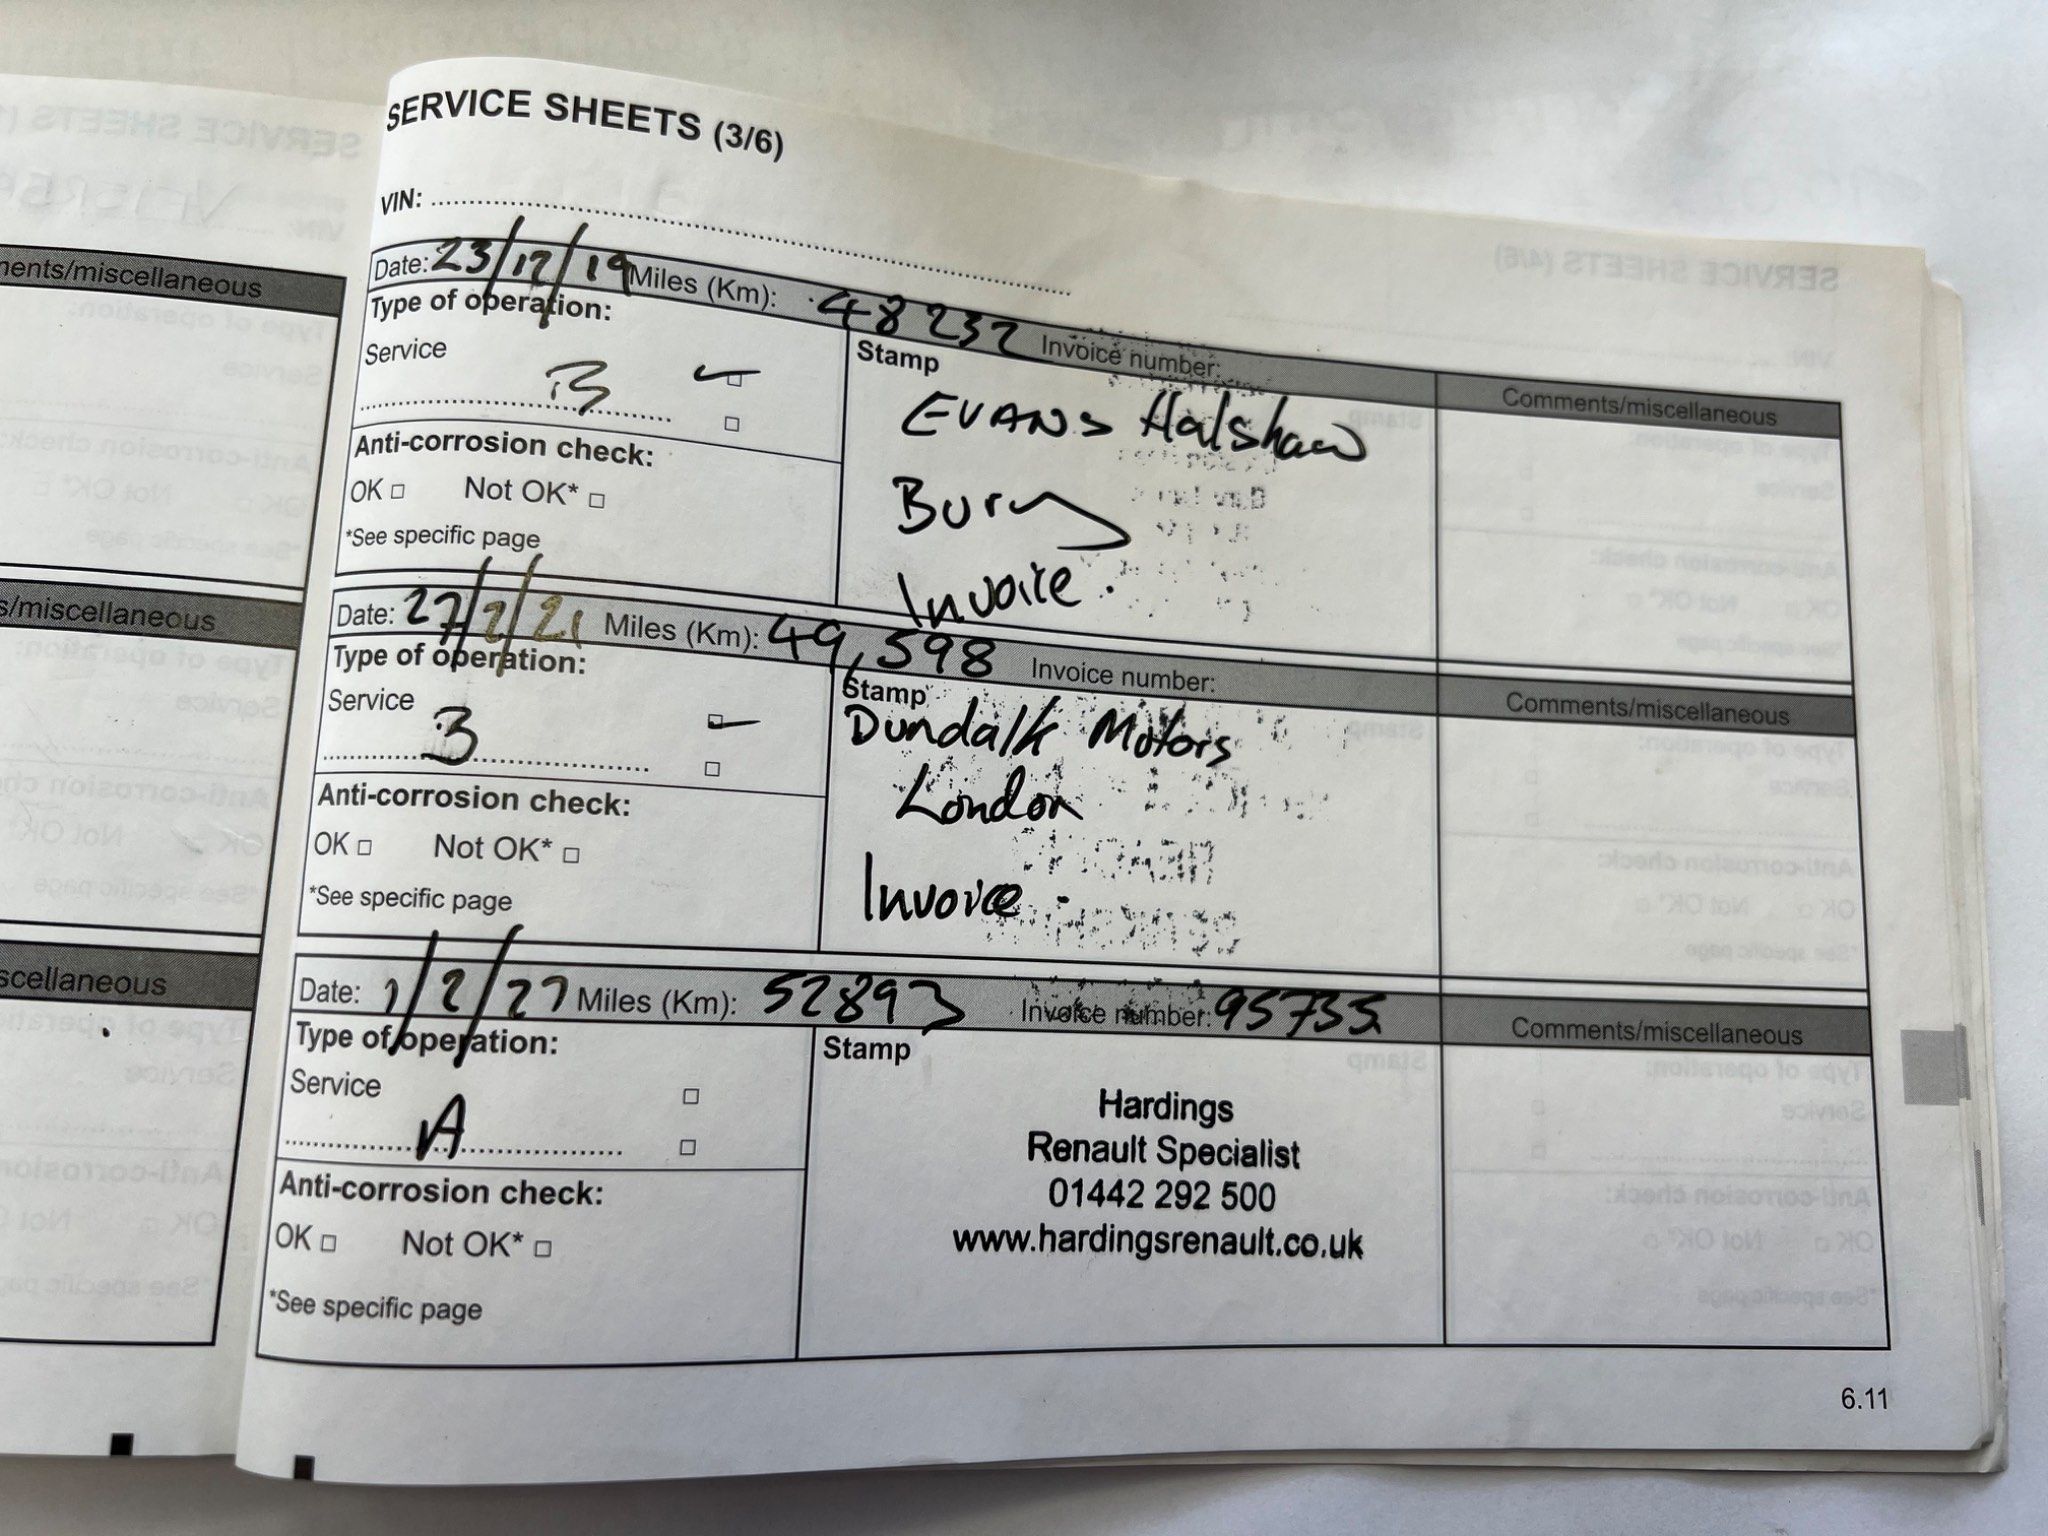 SERVICE SHEETS (3/6)
VIN:
Date: 23/12/19 Miles (Km): 48232 Invoice number:
Type of operation:
Service
B
Anti-corrosion check:
OK □ Not OK* □
*See specific page
Stamp
EVANS Halshaw
Bury
Invoice.
Comments/miscellaneous
Date: 27/2/21 Miles (Km): 49,598 Invoice number:
Type of operation:
Service
B
Anti-corrosion check:
OK □ Not OK* □
*See specific page
Stamp
Dundalk Motors
London
Invoice.
Comments/miscellaneous
Date: 1/2/22 Miles (Km): 52893 Invoice number: 95735
Type of operation:
Service
A
Anti-corrosion check:
OK □ Not OK* □
*See specific page
Stamp
Hardings
Renault Specialist
01442 292 500
www.hardingsrenault.co.uk
Comments/miscellaneous
6.11
ments/miscellaneous
s/miscellaneous
scellaneous